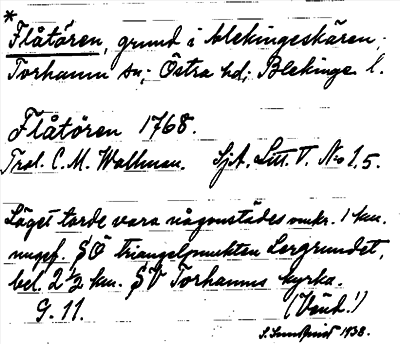 *
Flåtören, grund i blekingeskären;
Torhamn sn; Östra hd; Blekinge l.
Flåtören 1768.
Trol. C. M. Wallman. SjA. Litt. V. No 1,5.
Läget torde vara någonstädes omkr. 1 km.
ungef. SÖ triangelpunkten Lergrundet,
bel. 2 ½ km. SV Torhamns kyrka.
G. 11. (Vänd!)
1938.